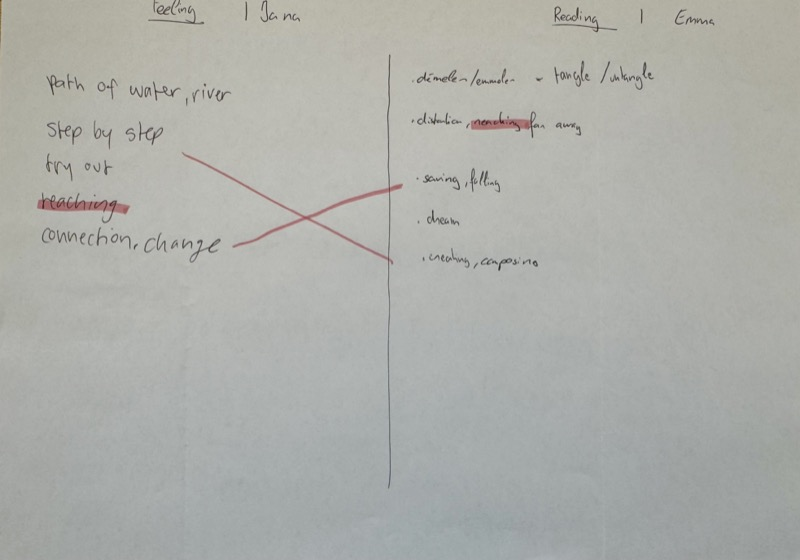 Feeling | Jana
path of water, river
step by step
try out
reaching
connection, change
Reading | Emma
. démeler/emmeler - tangle /untangle
. distantion, reaching far away
. saving, falling
. dream
. creating, composing